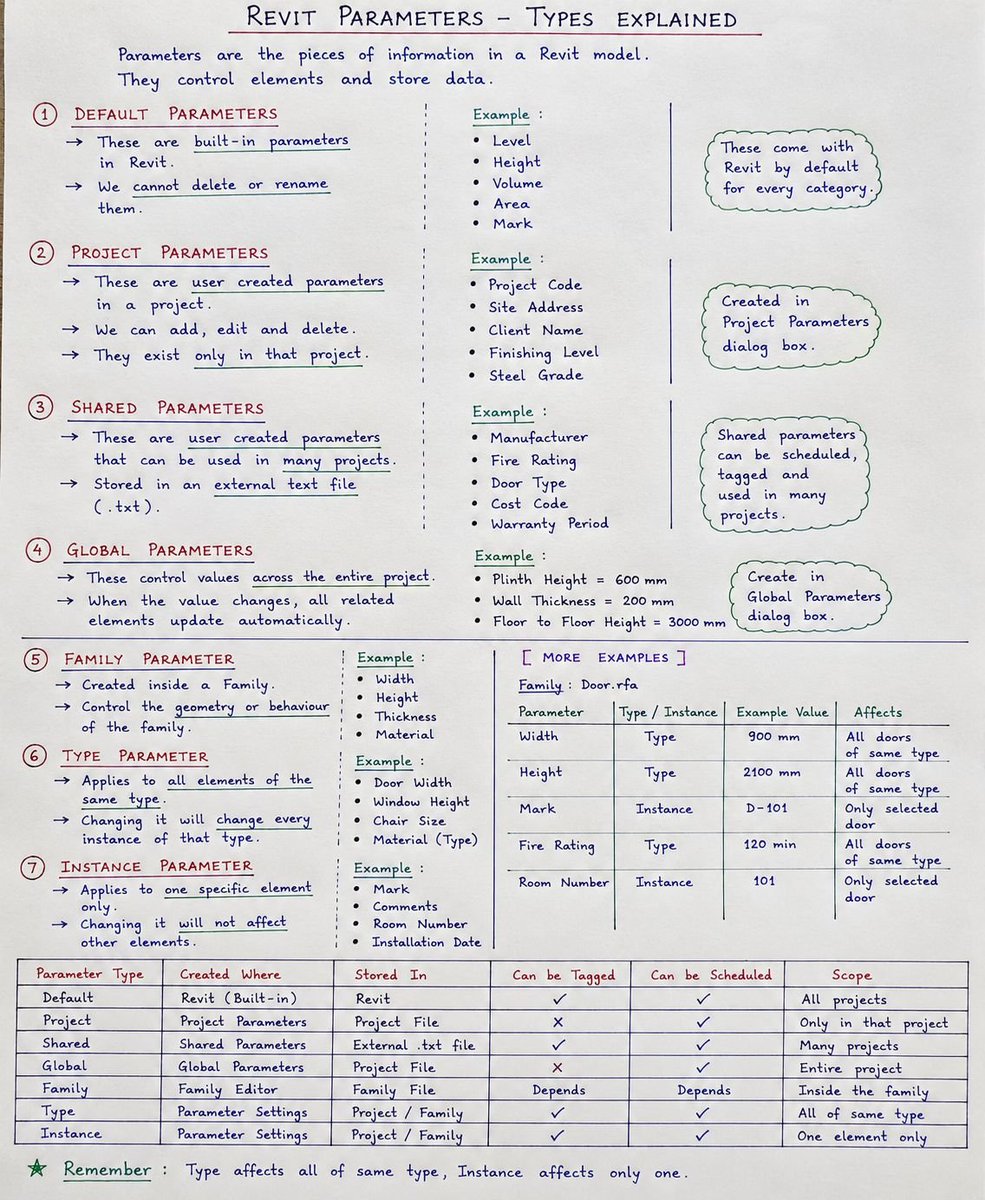 REVIT PARAMETERS – TYPES EXPLAINED
Parameters are the pieces of information in a Revit model.
They control elements and store data.
1 DEFAULT PARAMETERS
→ These are built-in parameters
in Revit.
→ We cannot delete or rename
them.
Example :
• Level
• Height
• Volume
• Area
• Mark
These come with
Revit by default
for every category.
2 PROJECT PARAMETERS
→ These are user created parameters
in a project.
→ We can add, edit and delete.
→ They exist only in that project.
Example :
• Project Code
• Site Address
• Client Name
• Finishing Level
• Steel Grade
Created in
Project Parameters
dialog box.
3 SHARED PARAMETERS
→ These are user created parameters
that can be used in many projects.
→ Stored in an external text file
(.txt).
Example :
• Manufacturer
• Fire Rating
• Door Type
• Cost Code
• Warranty Period
Shared parameters
can be scheduled,
tagged and
used in many
projects.
4 GLOBAL PARAMETERS
→ These control values across the entire project.
→ When the value changes, all related
elements update automatically.
Example :
• Plinth Height = 600 mm
• Wall Thickness = 200 mm
• Floor to Floor Height = 3000 mm
Create in
Global Parameters
dialog box.
5 FAMILY PARAMETER
→ Created inside a Family.
→ Control the geometry or behaviour
of the family.
Example :
• Width
• Height
• Thickness
• Material
6 TYPE PARAMETER
→ Applies to all elements of the
same type.
→ Changing it will change every
instance of that type.
Example :
• Door Width
• Window Height
• Chair Size
• Material (Type)
7 INSTANCE PARAMETER
→ Applies to one specific element
only.
→ Changing it will not affect
other elements.
Example :
• Mark
• Comments
• Room Number
• Installation Date
[ MORE EXAMPLES ]
Family : Door.rfa
Parameter Type / Instance Example Value Affects
Width Type 900 mm All doors
of same type
Height Type 2100 mm All doors
of same type
Mark Instance D-101 Only selected
door
Fire Rating Type 120 min All doors
of same type
Room Number Instance 101 Only selected
door
Parameter Type Created Where Stored In Can be Tagged Can be Scheduled Scope
Default Revit (Built-in) Revit ✓ ✓ All projects
Project Project Parameters Project File ✗ ✓ Only in that project
Shared Shared Parameters External .txt file ✓ ✓ Many projects
Global Global Parameters Project File ✗ ✓ Entire project
Family Family Editor Family File Depends Depends Inside the family
Type Parameter Settings Project / Family ✓ ✓ All of same type
Instance Parameter Settings Project / Family ✓ ✓ One element only
★ Remember : Type affects all of same type, Instance affects only one.